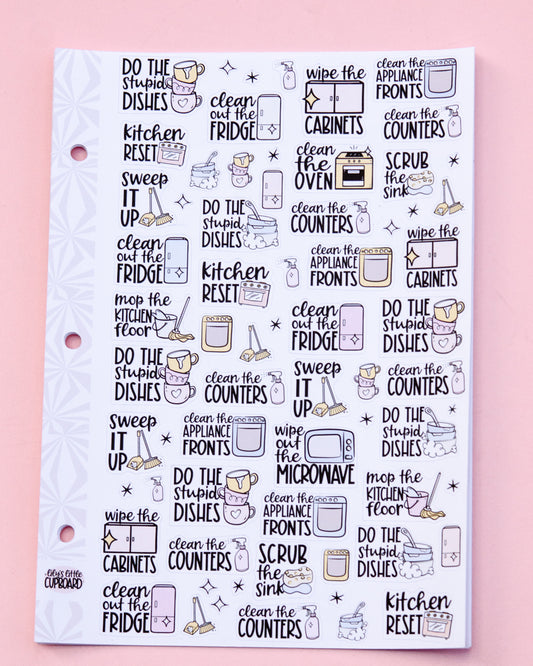 DO THE
stupid
DISHES
clean
out the
FRIDGE
wipe the
CABINETS
clean the
APPLIANCE
FRONTS
clean the
COUNTERS
kitchen
RESET
clean
THE
OVEN
SCRUB
the
sink
sweep
IT
UP
DO THE
stupid
DISHES
clean the
COUNTERS
wipe the
CABINETS
clean
out the
FRIDGE
kitchen
RESET
clean the
APPLIANCE
FRONTS
mop the
KITCHEN
floor
clean
out the
FRIDGE
DO THE
stupid
DISHES
DO THE
stupid
DISHES
clean the
COUNTERS
sweep
IT
UP
clean the
COUNTERS
sweep
IT
UP
clean the
APPLIANCE
FRONTS
wipe
out
the
MICROWAVE
DO THE
stupid
DISHES
DO THE
stupid
DISHES
clean the
APPLIANCE
FRONTS
mop the
KITCHEN
floor
wipe the
CABINETS
clean the
COUNTERS
SCRUB
the
sink
DO THE
stupid
DISHES
lily's little
CUPBOARD
clean
out the
FRIDGE
clean the
COUNTERS
kitchen
RESET